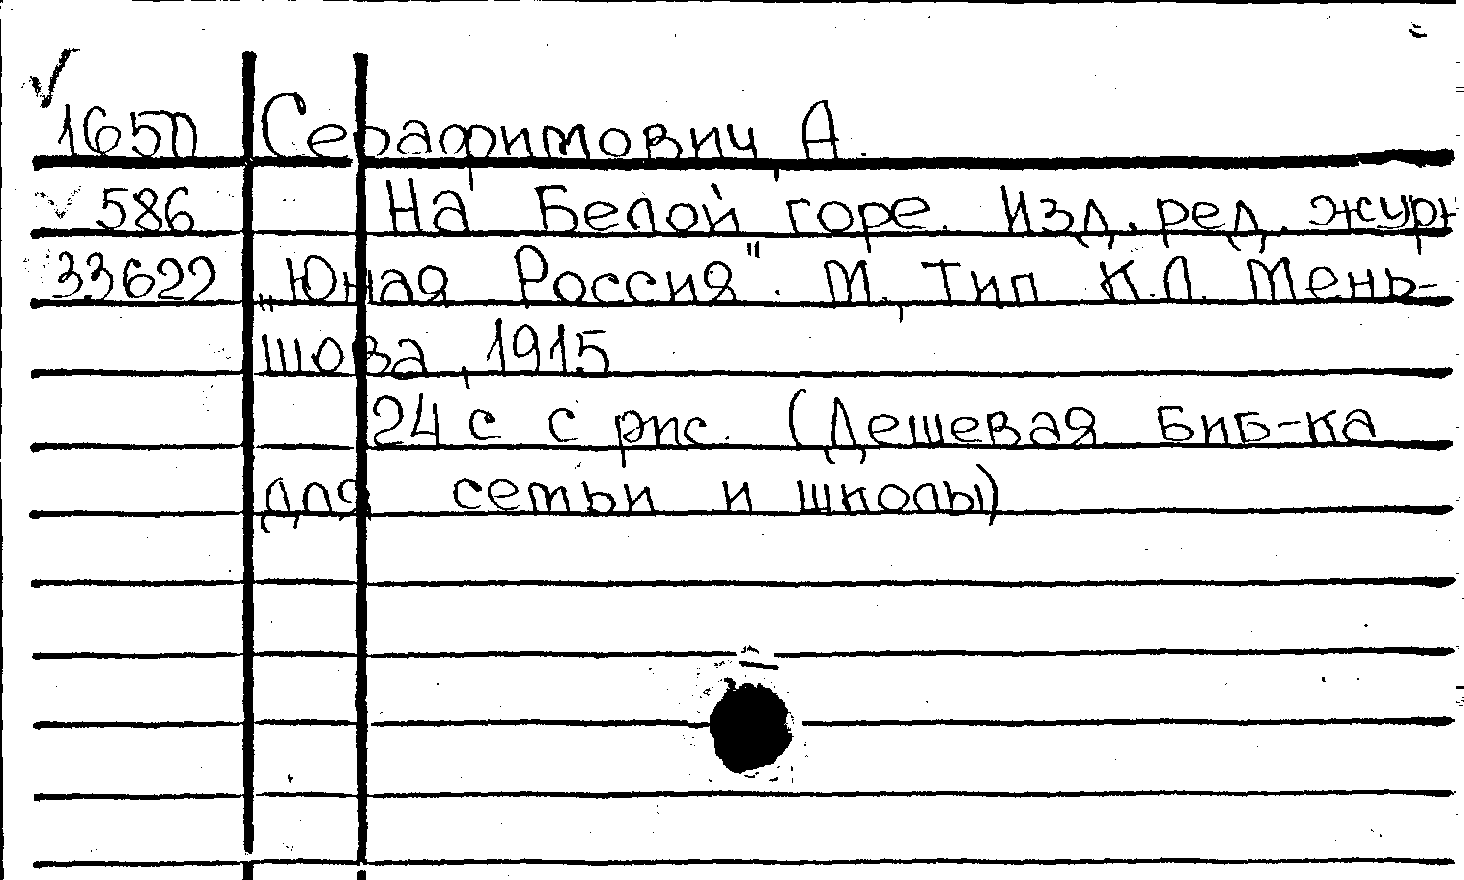 165П Серафимович А.
586 На Белой горе. Изд. ред. журн
33622 „Юная Россия". М., Тип К.Л. Мень-
шова, 1915
24 с с рис. (Дешевая Биб-ка
для семьи и школы)